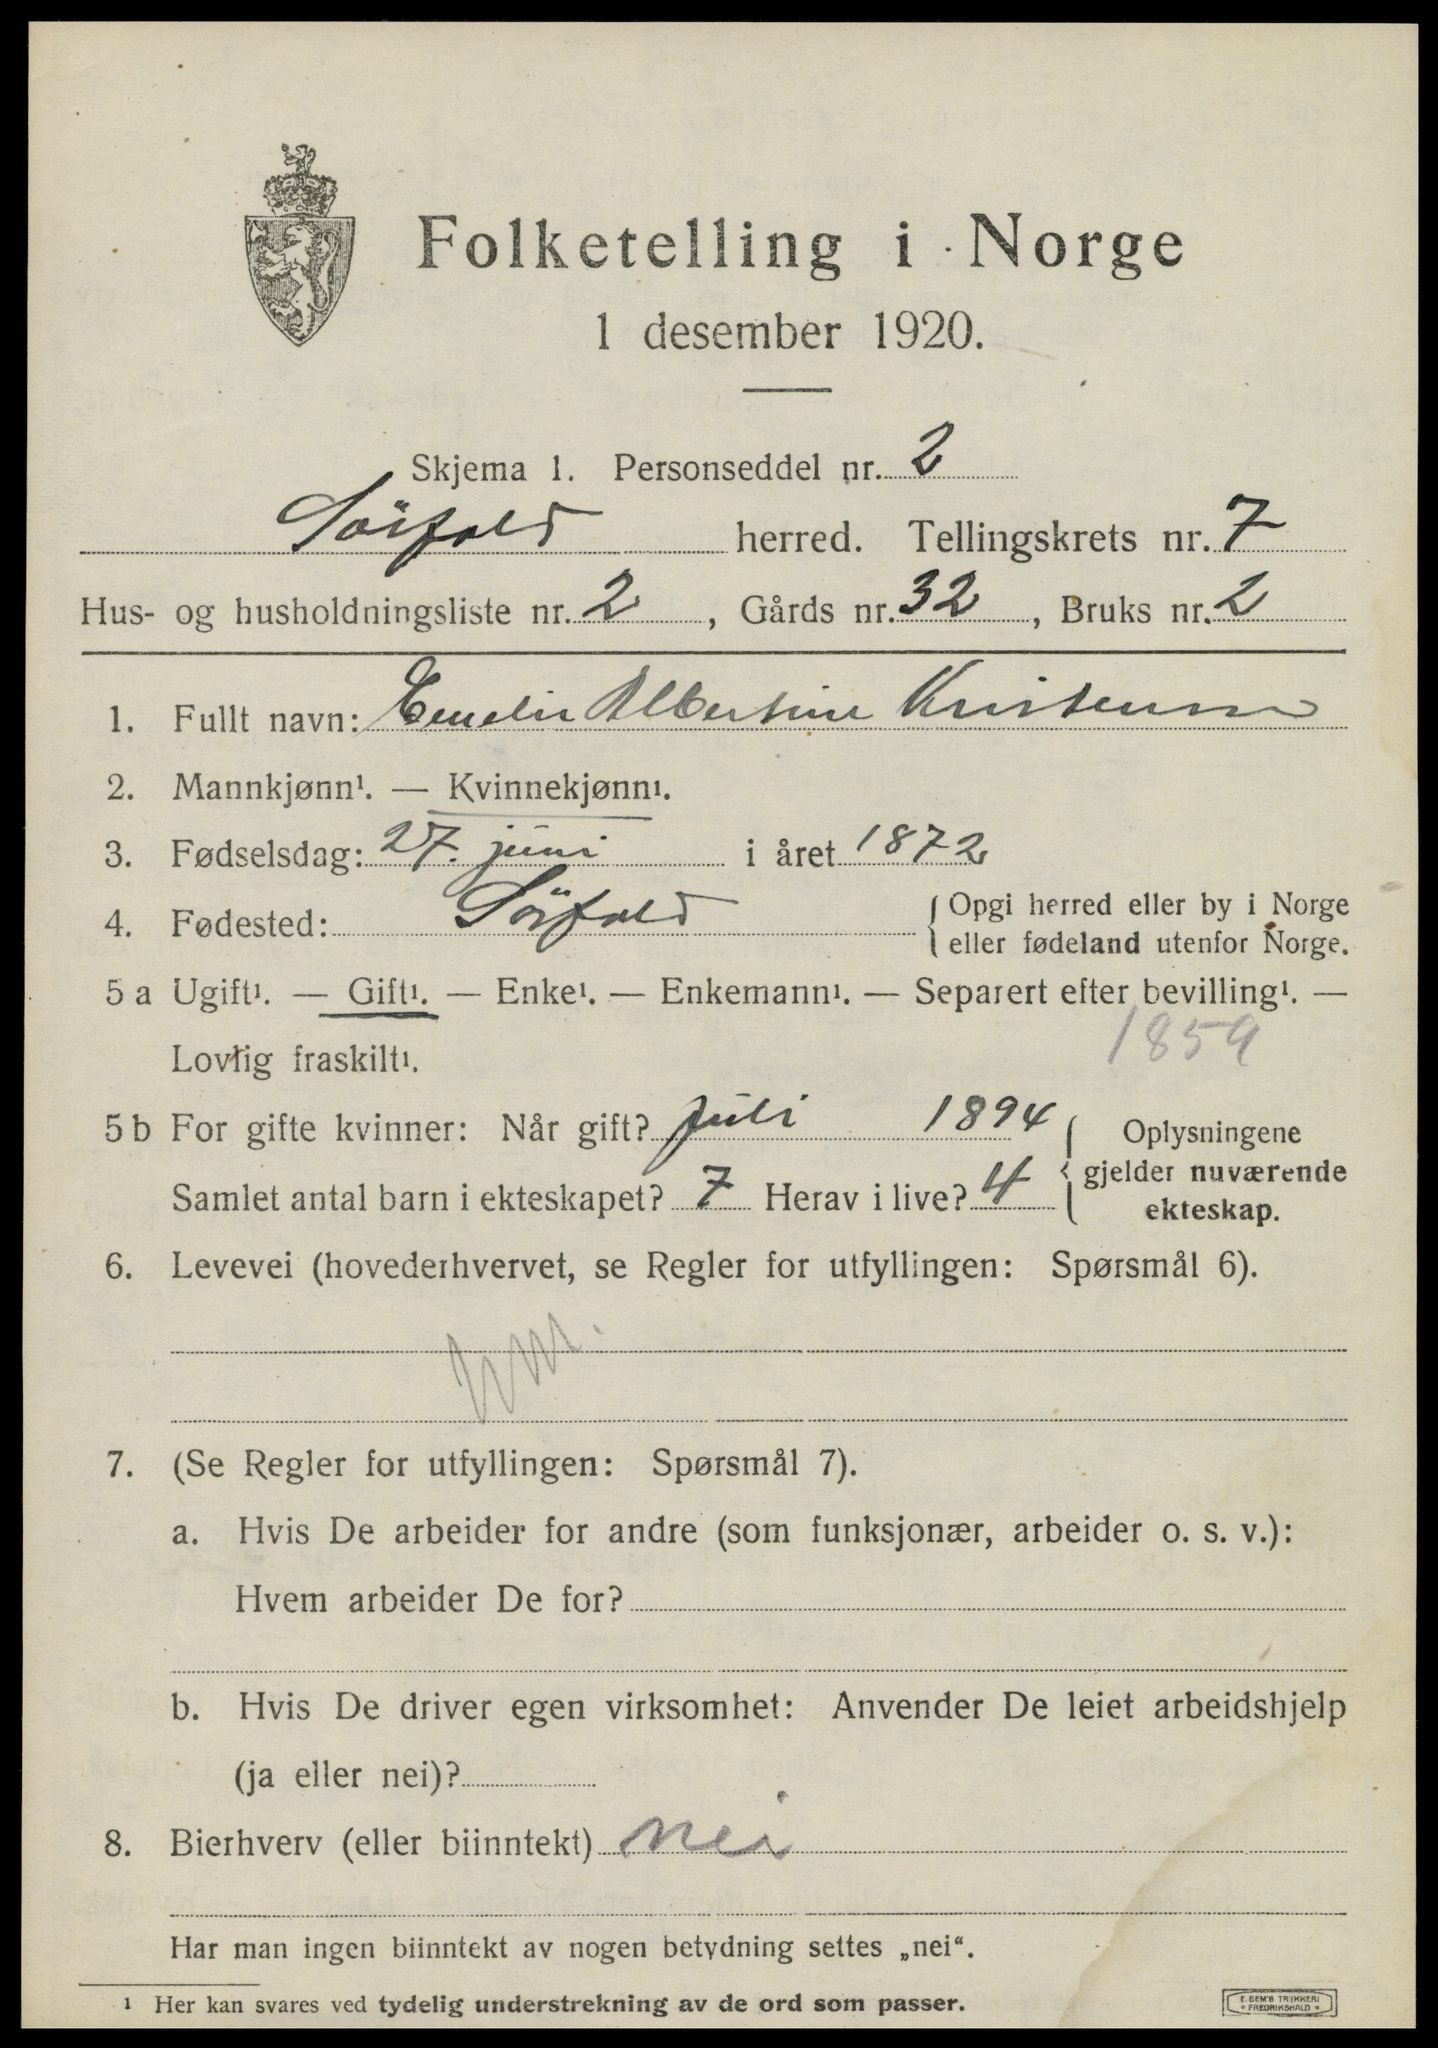 Folketelling i Norge
1 desember 1920.
Skjema 1. Personseddel nr. 2
Sörfold herred. Tellingskrets nr. 7
Hus- og husholdningsliste nr. 2, Gårds nr. 32, Bruks nr. 2
1. Fullt navn: Emelie Albertine Kristensen
2. Mannkjønn¹. — Kvinnekjønn¹.
3. Fødselsdag: 27. juni i året 1872
4. Fødested: Sörfold { Opgi herred eller by i Norge
eller fødeland utenfor Norge.
5 a Ugift¹. — Gift¹. — Enke¹. — Enkemann¹. — Separert efter bevilling¹. —
Lovlig fraskilt¹. 1859
5 b For gifte kvinner: Når gift? juli 1894 { Oplysningene
gjelder nuværende
ekteskap.
Samlet antal barn i ekteskapet? 7 Herav i live? 4
6. Levevei (hovederhvervet, se Regler for utfyllingen: Spørsmål 6).
hm.
7. (Se Regler for utfyllingen: Spørsmål 7).
a. Hvis De arbeider for andre (som funksjonær, arbeider o. s. v.):
Hvem arbeider De for?
b. Hvis De driver egen virksomhet: Anvender De leiet arbeidshjelp
(ja eller nei)?
8. Bierhverv (eller biinntekt) nei
Har man ingen biinntekt av nogen betydning settes „nei“.
¹ Her kan svares ved tydelig understrekning av de ord som passer.
E. SEM'S TRYKKERI
FREDRIKSHALD